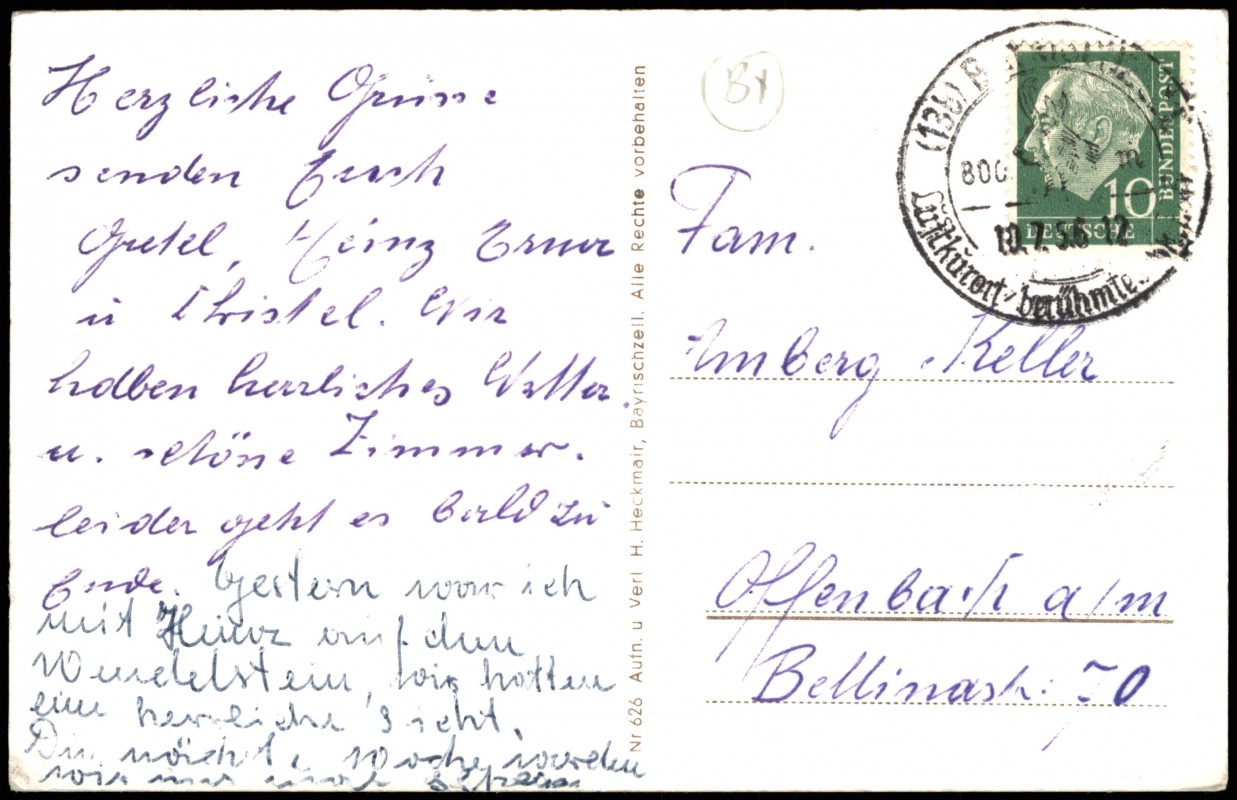 Herzliche Grüsse
senden Euch
Gretel, Heinz Erner
u Christel. Wir
haben herrliches Wetter.
u. schöne Zimmer.
leider geht es bald zu
Ende. Gestern war ich
mit Heinz auf dem
Wendelstein, wir hatten
eine herrliche Sicht.
Die nächst. Woche werden
wir uns
Nr 626 Aufn. u Verl H. Heckmair, Bayrischzell. Alle Rechte vorbehalten
BY
(13b)
800 m
10.7.56-12
Luftkurort - berühmte
DEUTSCHE
BUNDESPOST
10
Fam.
Umberg Keller
Offenbach a/m
Bellinastr. 70